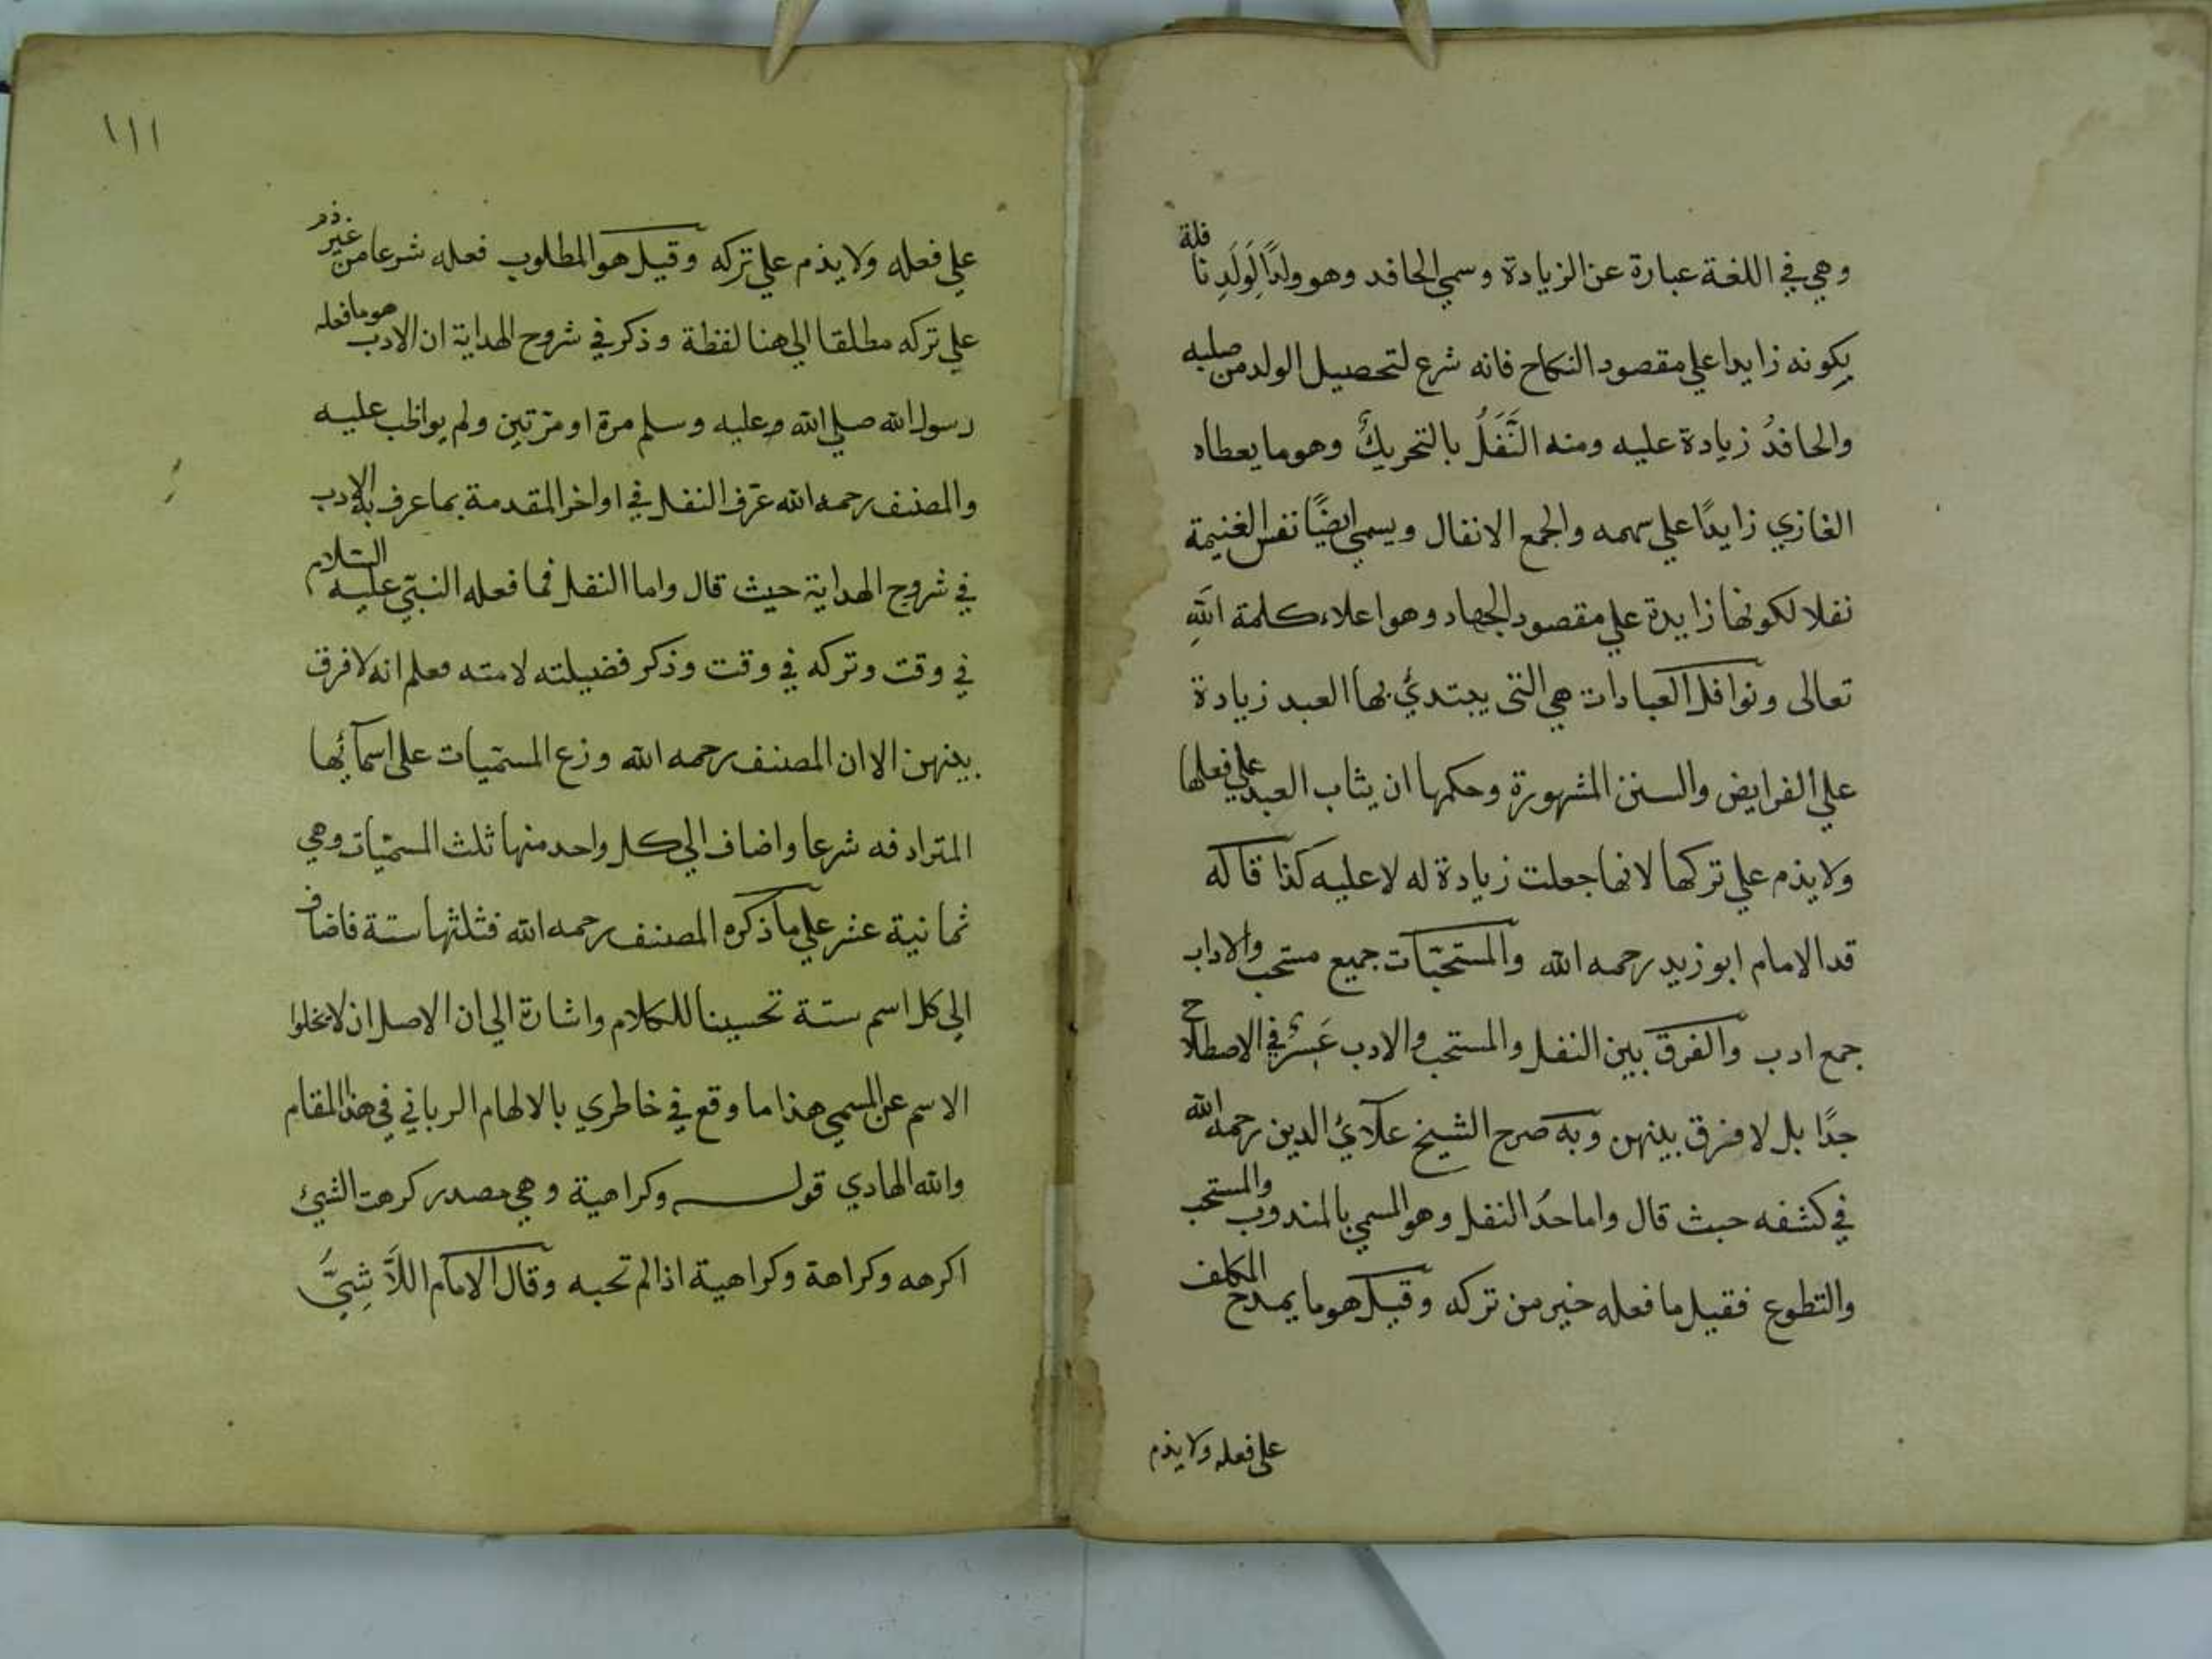 وهي في اللغة عبارة عن الزيادة وسمي الحافد وهو ولدًا لِوَلَدِ نافلة
بِكونه زايدا علي مقصود النكاح فانه شرع لتحصيل الولد من صلبه
والحافدُ زيادة عليه ومنه النَّفَلُ بالتحريكُ وهو ما يعطاه
الغازي زايدًا علي سهمه والجمع الانفال ويسمي ايضًا نفس الغنيمة
نفلا لكونها زايدة علي مقصود الجهاد وهو اعلاء كلمة اللهِ
تعالى ونوافل العبادات هي التى يبتديُ بها العبد زيادة
علي الفرايض والسنن المشهورة وحكمها ان يثاب العبد علي فعلها
ولا يذم علي تركها لانها جعلت زيادة له لا عليه كذا قاله
قد الامام ابو زيد رحمه الله والمستحبّات جميع مستحب والاداب
جمع ادب والفرق بين النفل والمستحب والادب عَسِرٌ في الاصطلاح
جدًا بل لا فرق بينهن وبه صرح الشيخ علائ الدين رحمه الله
في كشفه حيث قال واما حدُ النفل وهو المسمي بالمندوب والمستحب
والتطوع فقيل ما فعله خير من تركه وقيل هو ما يمدح المكلف
على فعله ولا يذم
١١١
علي فعله ولا يذم علي تركه وقيل هو المطلوب فعله شرعا من غير ذم
علي تركه مطلقا الي هنا لفظة وذكر في شروح الهداية ان الادب هو ما فعله
رسول الله صلي الله وعليه وسلم مرة او مرّتين ولم يواظب عليه
والمصنف رحمه الله عرّف النفل في اواخر المقدمة بما عرف به الادب
في شروح الهداية حيث قال واما النفل فما فعله النبيّ عليه السّلام
في وقت وتركه في وقت وذكر فضيلته لامته فعلم انه لا فرق
بينهن الا ان المصنف رحمه الله وزع المسمّيات على اسمآئها
المترادفه شرعا واضاف الي كل واحد منها ثلث المسمّيات وهي
ثمانية عشر علي ما ذكره المصنف رحمه الله فثلثها ستة فاضاف
الي كل اسم ستة تحسينا للكلام واشارة الي ان الاصل ان لا يخلوا
الاسم عن المسمي هذا ما وقع في خاطري بالالهام الرباني في هذا المقام
والله الهادي قوله وكراهية وهي مصدر كرهت الشيئ
اكرهه وكراهة وكراهية اذا لم تحبه وقال الامام اللاَّ شِيُّ